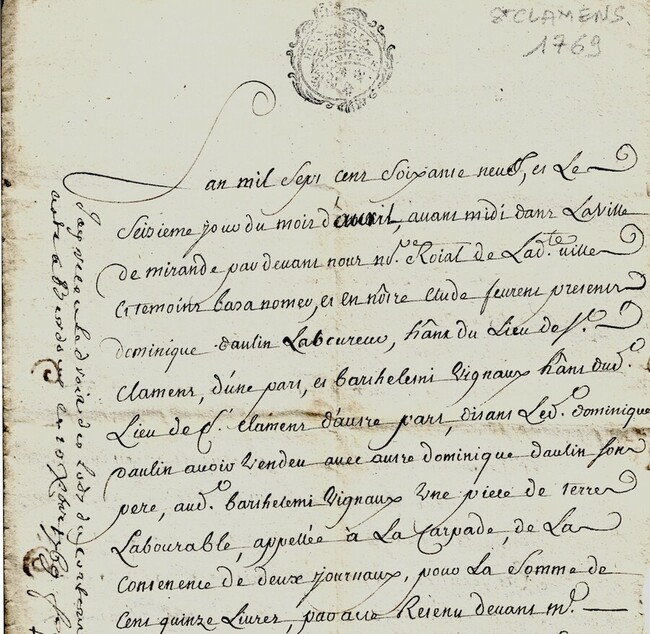 St CLAMENS.
1769
Lan mil sept cent soixante neuf, et Le
seisieme jour du mois d'auril, auant midi dans La ville
de mirande par deuant nous nre. Roial de Ladte. ville
et temoins bas nomes, et en nôtre etude feurent presens
dominique daulin Laboureur, hânt du Lieu de St.
Clamens, d'une part, et barthelemi Vignaux hânt dud.
Lieu de St. Clamens d'autre part, disant Led. dominique
daulin auoir vendeu auec autre dominique daulin son
pere, aud. barthelemi Vignaux Une piece de terre
Labourable, appellée à La Carpade, de La
Contenence de deux journaux, pour La Somme de
Cent quinze Liures, par acte Retenu deuant Me.
J'ay receu le droit des Lods du